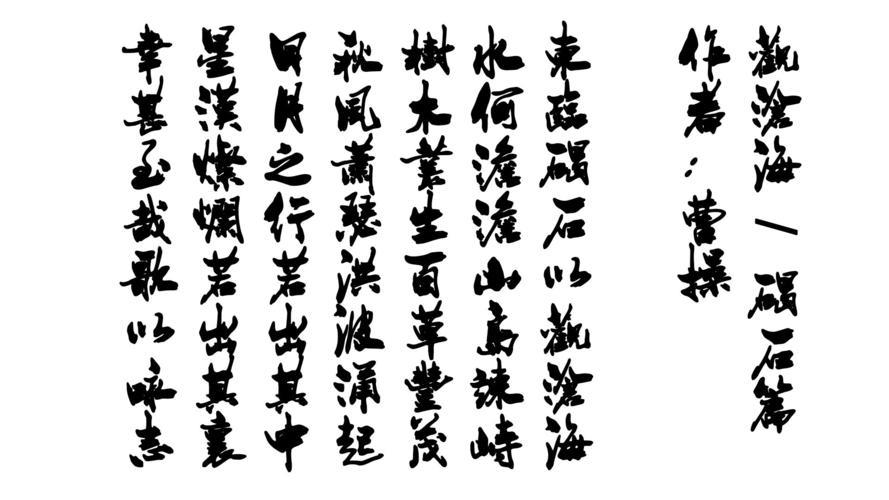 觀滄海—碣石篇
作者：曹操
東臨碣石以觀滄海
水何澹澹山島竦峙
樹木叢生百草豐茂
秋風蕭瑟洪波涌起
日月之行若出其中
星漢燦爛若出其裏
幸甚至哉歌以咏志